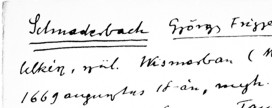 Schmaderbach György Frigye
lelkész, szül. Wismarban (
1669 augusztus 18-án, megh.